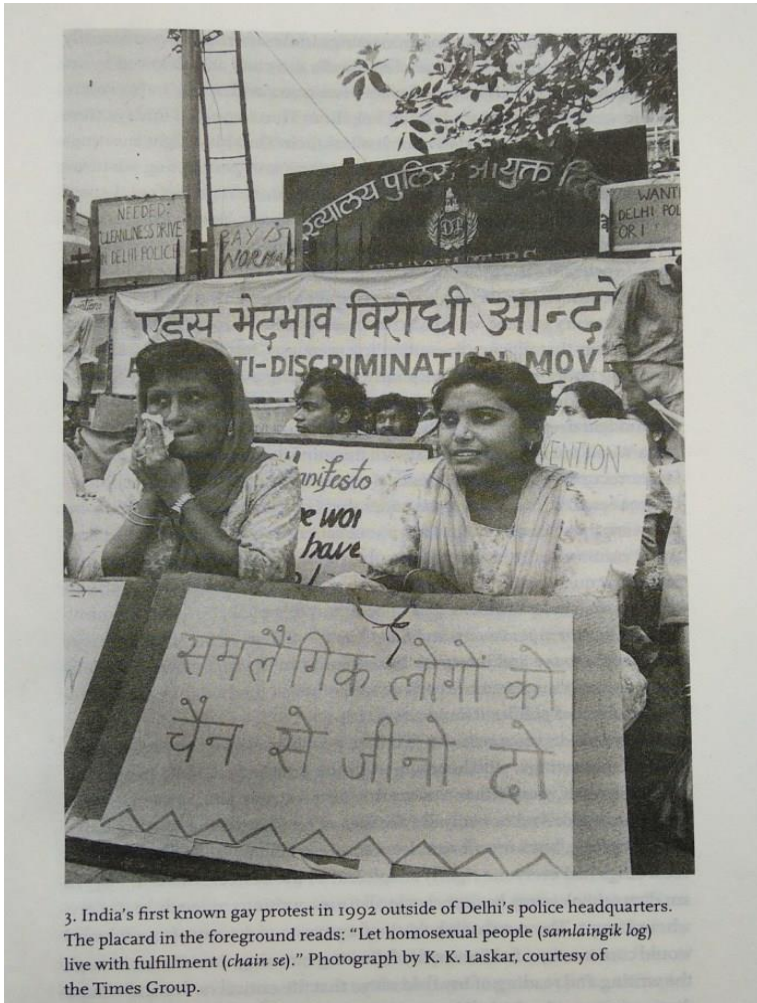 NEEDED:
CLEANLINESS DRIVE
IN DELHI POLICE
GAY IS
NORMAL
पुलिस आयुक्त
DELHI POL
एड्स भेदभाव विरोधी
TI-DISCRIMINATION MOV
anifesto
have
VENTION
समलैंगिक लोगों को
चैन से जीनो दो
3. India's first known gay protest in 1992 outside of Delhi's police headquarters.
The placard in the foreground reads: "Let homosexual people (samlaingik log)
live with fulfillment (chain se)." Photograph by K. K. Laskar, courtesy of
the Times Group.